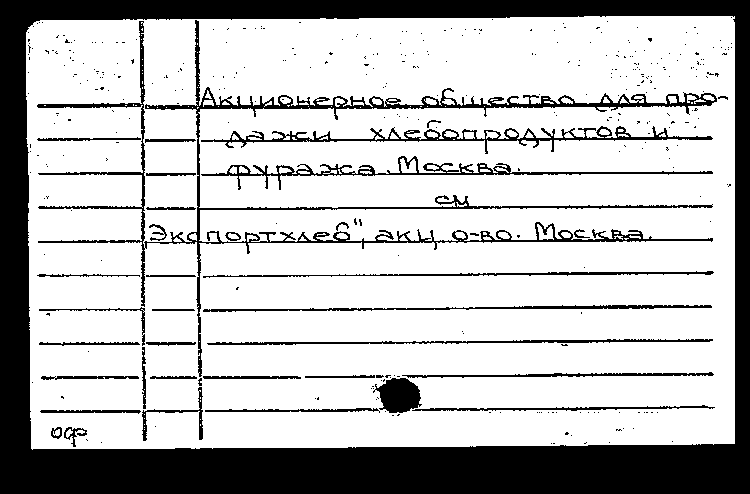 Акционерное общество для про-
дажи хлебопродуктов и
фуража. Москва.
см
Экспортхлеб", акц. о-во. Москва.
оф